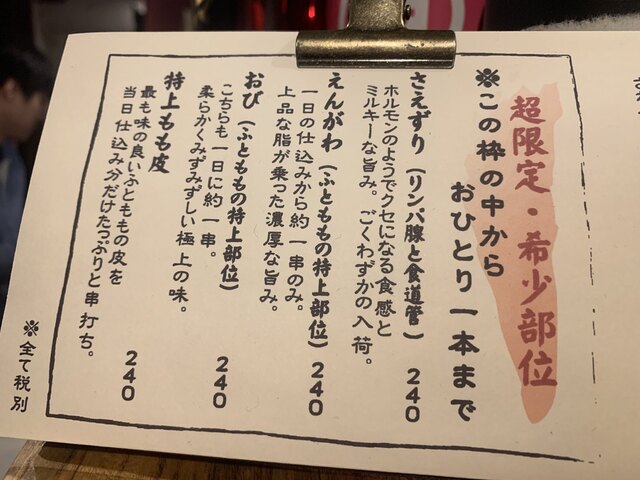 超限定・希少部位
※この枠の中から
おひとり一本まで
さえずり(リンパ腺と食道管) 240
ホルモンのようでクセになる食感と
ミルキーな旨み。ごくわずかの入荷。
えんがわ(ふとももの特上部位) 240
一日の仕込みから約一串のみ。
上品な脂が乗った濃厚な旨み。
おび(ふとももの特上部位) 240
こちらも一日に約一串。
柔らかくみずみずしい極上の味。
特上もも皮 240
最も味の良いふとももの皮を
当日仕込み分だけたっぷりと串打ち。
※全て税別